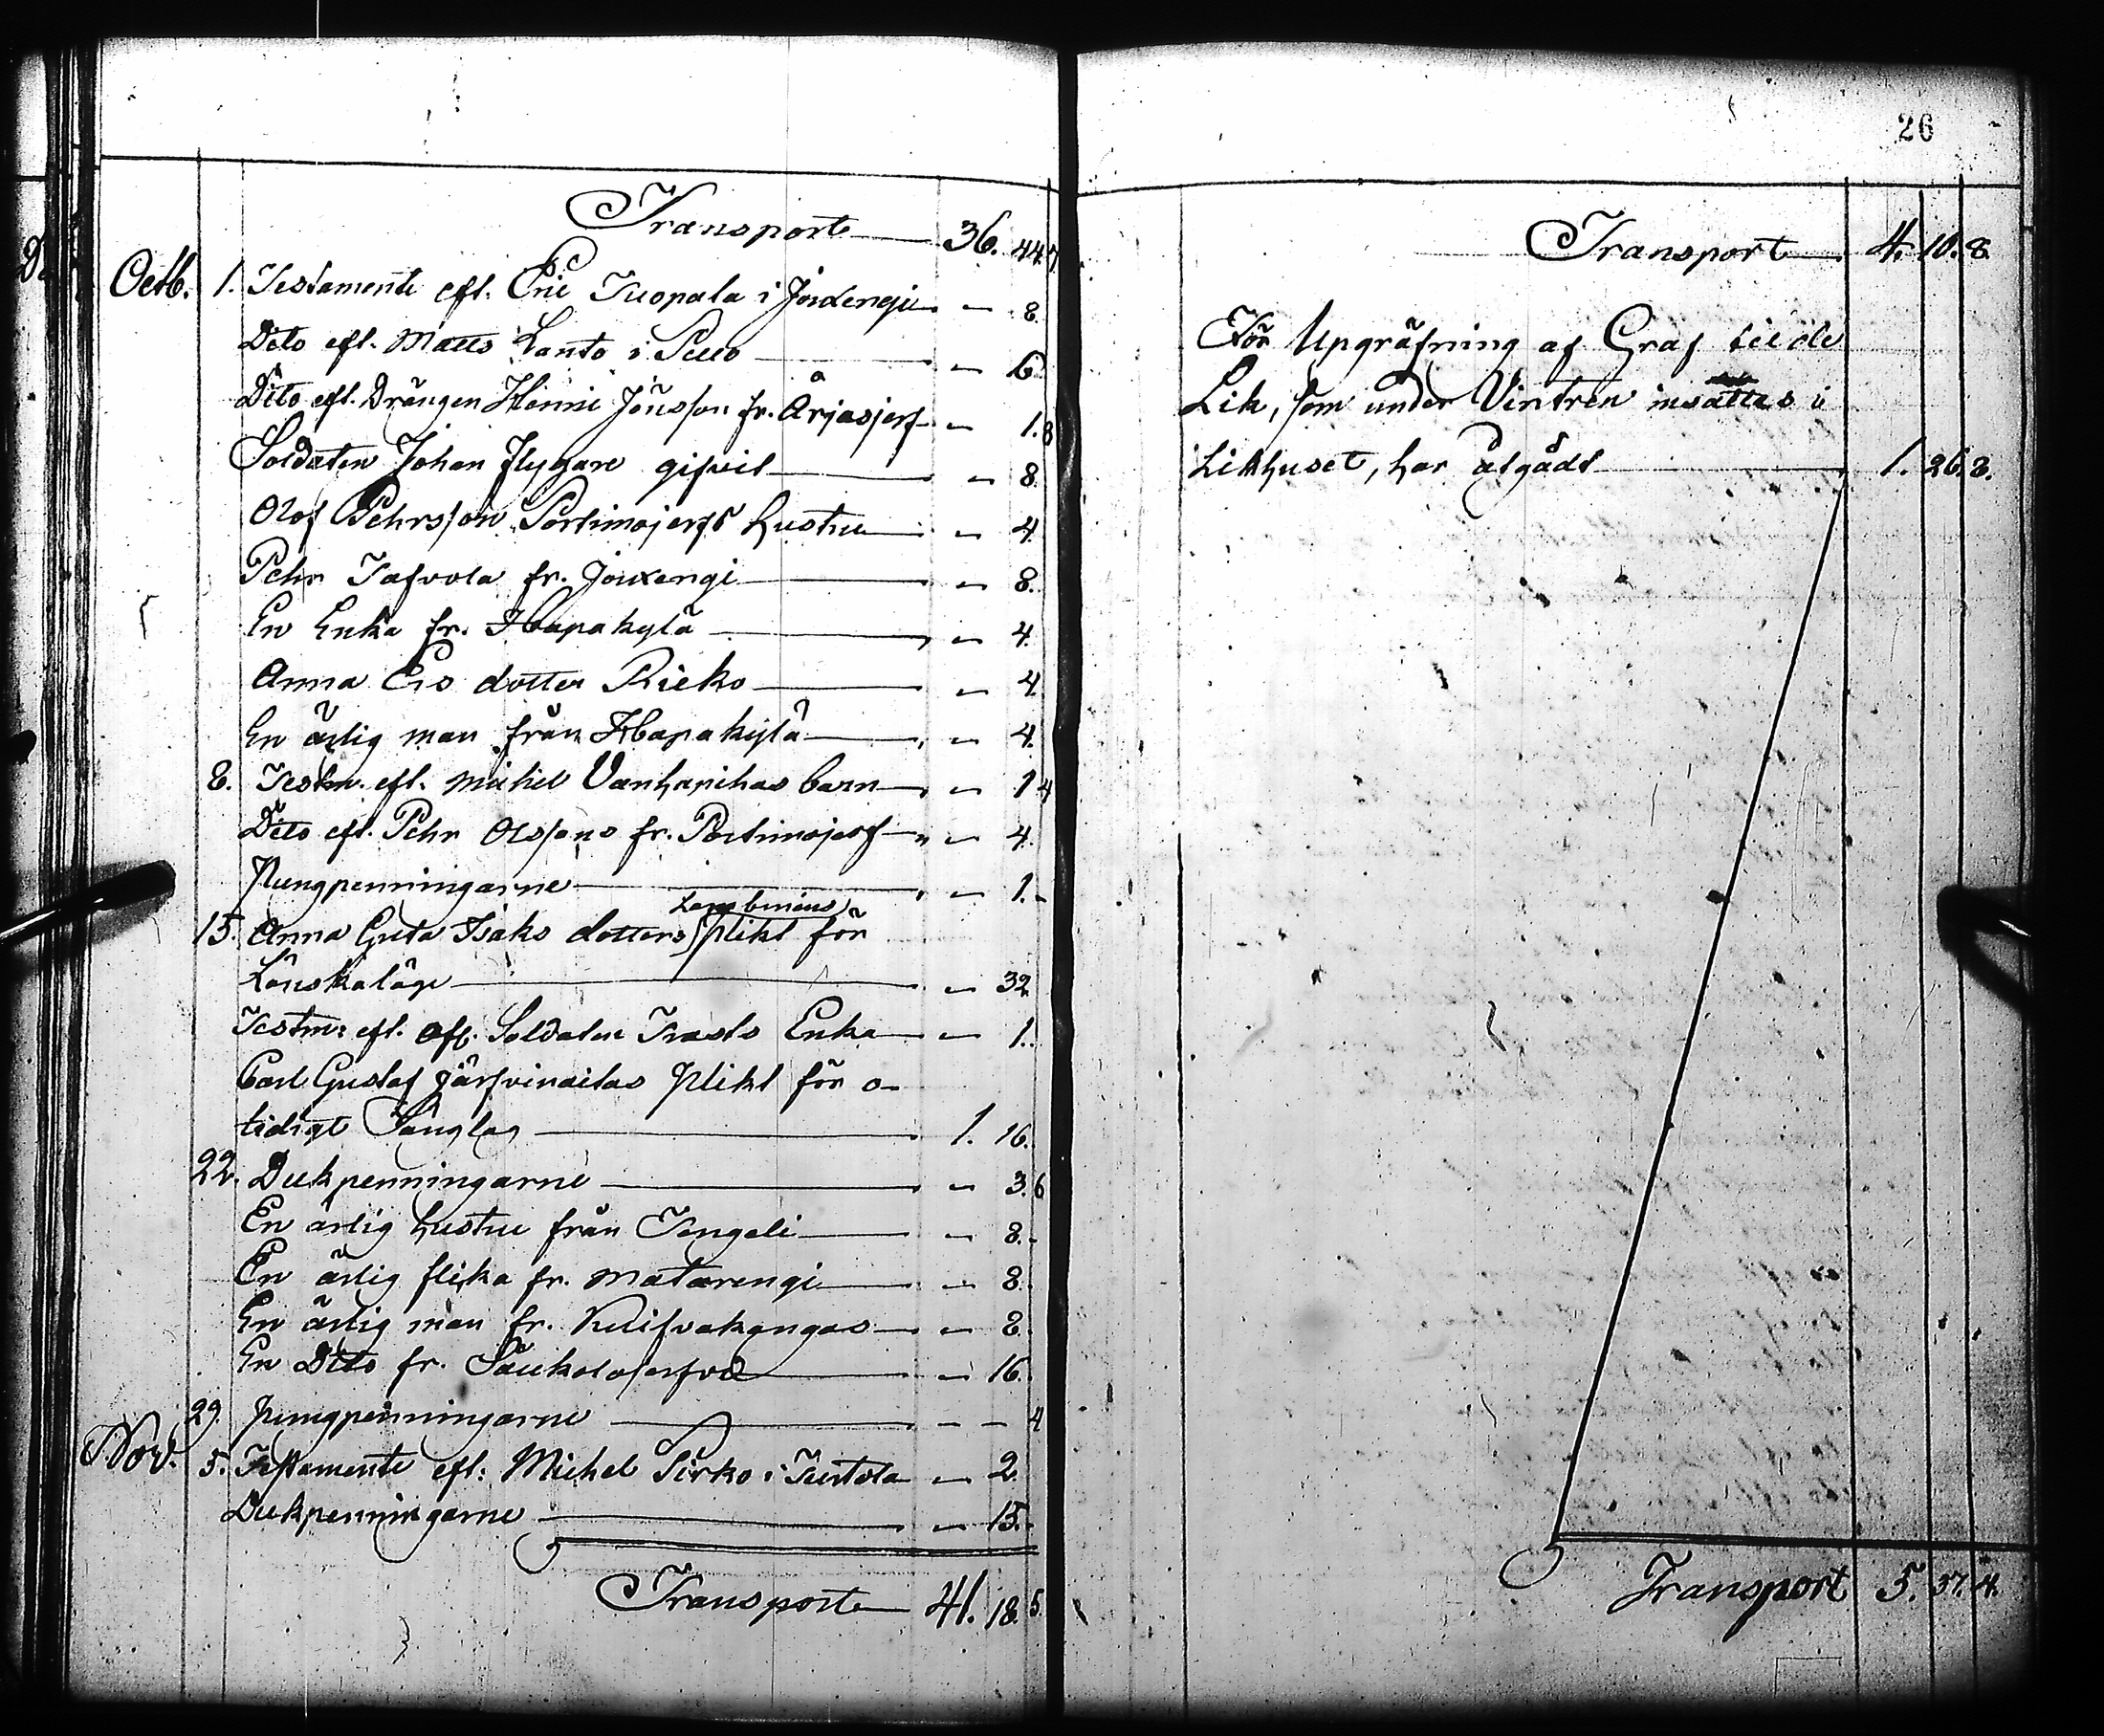 Transport 36. 44. 7
Octb. 1. Testamente eft. Eric Kuopala i Jouxengi - 8.
Dito eft. Matts Lanto i Pello - 6.
Dito eft. Drängen Henric Jönsson fr. Arjasjerf - 1. 8
Soldaten Johan Flygare gifvit - 8.
Olof Pehrsson Portimojerfs hustru - 4.
Pehr Tafvola fr. Jouxengi - 8.
En Enka fr. Haapakylä - 4.
Anna Ers dotter Rieko - 4.
En ärlig man från Haapakylä - 4.
8. Testm. eft. Michel Vanhapihas barn - 1 4
Dito eft. Pehr Olssons fr. Portimojerf - 4.
Pungpenningarne - 1. -
Lambinens
15. Anna Greta Isaks dotters plikt för
Lönskaläge - 32
Testm: eft. Afl. Soldaten Trasts Enka - 1.
Carl Gustaf Järfvinaitas plikt för o-
tidigt Sänglag 1. 16.
22. Dukpenningarne - 3. 6
En ärlig hustru från Tengeli - 8. -
En ärlig flicka fr. Matarengi - 8.
En ärlig man fr. Kuifvakangas - 8.
En Dito fr. - 16.
29. Pungpenningarne - - 4
Nov. 5. Testamente eft: Michel Pirko i Turtola - 2.
Dukpenningarne - 15. -
Transport 41. 18. 5.
26
Transport 4. 10. 8.
För Upgräfning af Graf till de
Lik, som under Vintren insattes i
Likhuset, har åtgådt 1. 26. 8.
Transport 5. 37. 4.